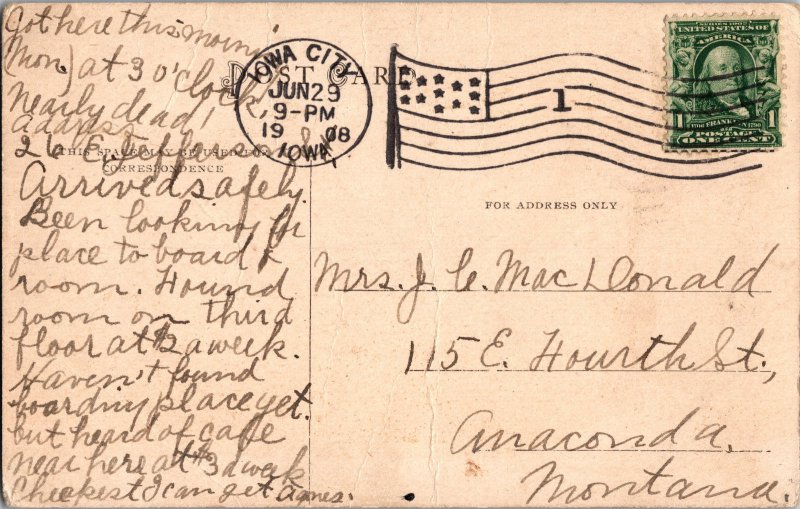 Got here this morning
(Mon.) at 3 o'clock,
nearly dead!
Address
26 E.
THIS SPACE MAY BE USED FOR
CORRESPONDENCE
Arrived safely.
Been looking for
place to board &
room. Found
room on third
floor at $2 a week.
Haven't found
boarding place yet.
but heard of cafe
near here at $3 a week
Cheapest I can get Agnes.
POST CARD
IOWA CITY
JUN 29
9-PM
1908
IOWA
1
SERIES 1902
UNITED STATES OF AMERICA
1706 FRANKLIN 1790
1 POSTAGE 1
ONE CENT
FOR ADDRESS ONLY
Mrs. J. C. MacDonald
115 E. Fourth St.,
Anaconda,
Montana.